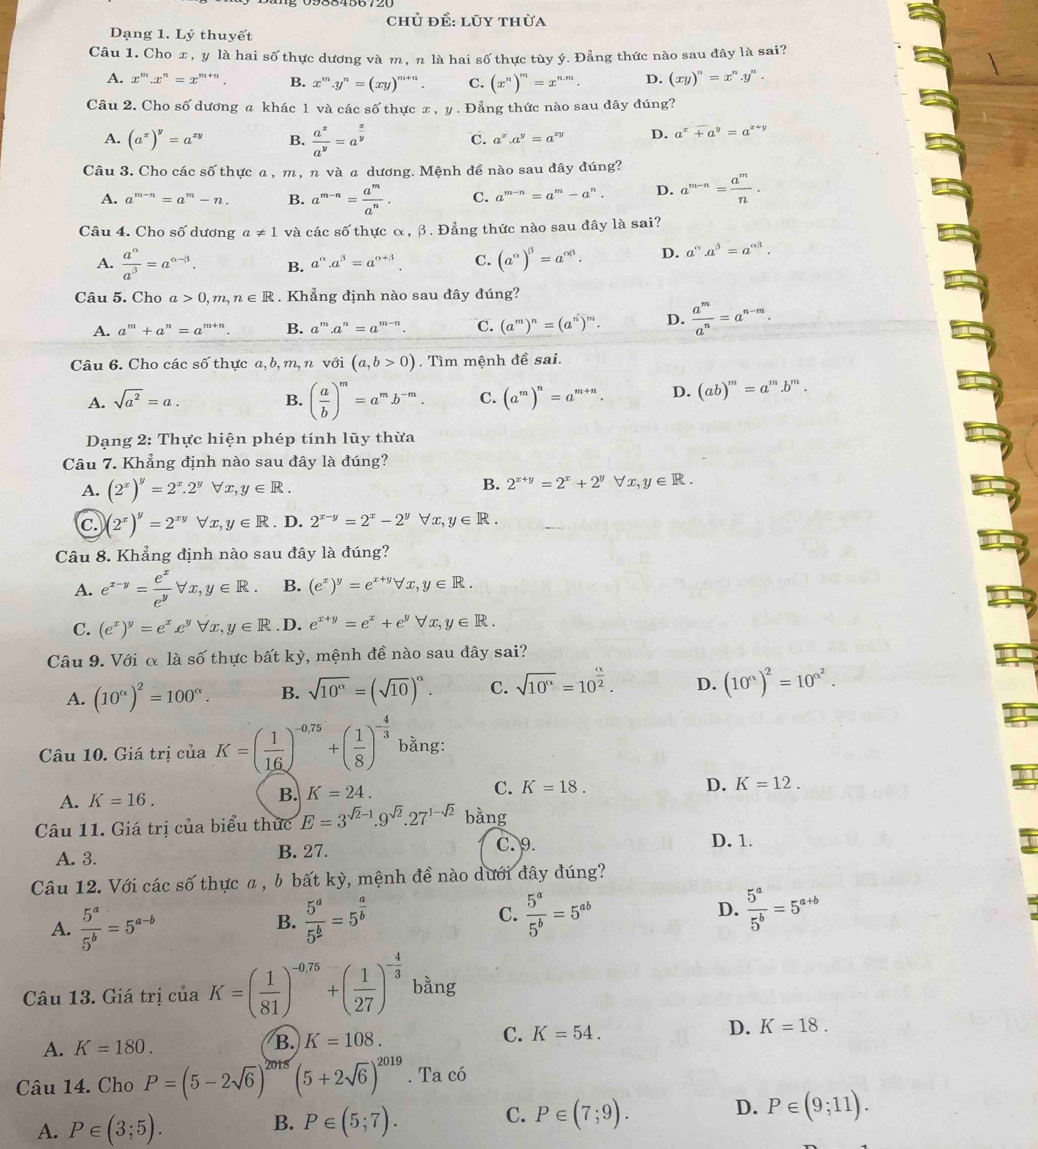 0988456720
CHỦ ĐỀ: LŨY THỪA
Dạng 1. Lý thuyết
Câu 1. Cho x, y là hai số thực dương và m, n là hai số thực tùy ý. Đẳng thức nào sau đây là sai?
A. x^m.x^n = x^{m+n}. B. x^m.y^n = (xy)^{m+n}. C. (x^n)^m = x^{n.m}. D. (xy)^n = x^n.y^n.
Câu 2. Cho số dương a khác 1 và các số thực x, y. Đẳng thức nào sau đây đúng?
A. (a^x)^y = a^{xy} B. a^x/a^y = a^{x/y} C. a^x.a^y = a^{xy} D. a^x + a^y = a^{x+y}
Câu 3. Cho các số thực a, m, n và a dương. Mệnh đề nào sau đây đúng?
A. a^{m-n} = a^m - n. B. a^{m-n} = a^m/a^n. C. a^{m-n} = a^m - a^n. D. a^{m-n} = a^m/n.
Câu 4. Cho số dương a ≠ 1 và các số thực α, β. Đẳng thức nào sau đây là sai?
A. a^α/a^β = a^{α-β}. B. a^α.a^β = a^{α+β}. C. (a^α)^β = a^{αβ}. D. a^α.a^β = a^{αβ}.
Câu 5. Cho a > 0, m, n ∈ ℝ. Khẳng định nào sau đây đúng?
A. a^m + a^n = a^{m+n}. B. a^m.a^n = a^{m-n}. C. (a^m)^n = (a^n)^m. D. a^m/a^n = a^{n-m}.
Câu 6. Cho các số thực a, b, m, n với (a, b > 0). Tìm mệnh đề sai.
A. √(a^2) = a. B. (a/b)^m = a^m.b^{-m}. C. (a^m)^n = a^{m+n}. D. (ab)^m = a^m.b^m.
Dạng 2: Thực hiện phép tính lũy thừa
Câu 7. Khẳng định nào sau đây là đúng?
A. (2^x)^y = 2^x.2^y ∀x, y ∈ ℝ. B. 2^{x+y} = 2^x + 2^y ∀x, y ∈ ℝ.
C. (2^x)^y = 2^{xy} ∀x, y ∈ ℝ. D. 2^{x-y} = 2^x - 2^y ∀x, y ∈ ℝ.
Câu 8. Khẳng định nào sau đây là đúng?
A. e^{x-y} = e^x/e^y ∀x, y ∈ ℝ. B. (e^x)^y = e^{x+y} ∀x, y ∈ ℝ.
C. (e^x)^y = e^x.e^y ∀x, y ∈ ℝ. D. e^{x+y} = e^x + e^y ∀x, y ∈ ℝ.
Câu 9. Với α là số thực bất kỳ, mệnh đề nào sau đây sai?
A. (10^α)^2 = 100^α. B. √(10^α) = (√10)^α. C. √(10^α) = 10^{α/2}. D. (10^α)^2 = 10^{α^2}.
Câu 10. Giá trị của K = (1/16)^{-0,75} + (1/8)^{-4/3} bằng:
A. K = 16. B. K = 24. C. K = 18. D. K = 12.
Câu 11. Giá trị của biểu thức E = 3^{√2-1}.9^{√2}.27^{1-√2} bằng
A. 3. B. 27. C. 9. D. 1.
Câu 12. Với các số thực a, b bất kỳ, mệnh đề nào dưới đây đúng?
A. 5^a/5^b = 5^{a-b} B. 5^a/5^b = 5^{a/b} C. 5^a/5^b = 5^{ab} D. 5^a/5^b = 5^{a+b}
Câu 13. Giá trị của K = (1/81)^{-0,75} + (1/27)^{-4/3} bằng
A. K = 180. B. K = 108. C. K = 54. D. K = 18.
Câu 14. Cho P = (5 - 2√6)^{2018} (5 + 2√6)^{2019}. Ta có
A. P ∈ (3;5). B. P ∈ (5;7). C. P ∈ (7;9). D. P ∈ (9;11).